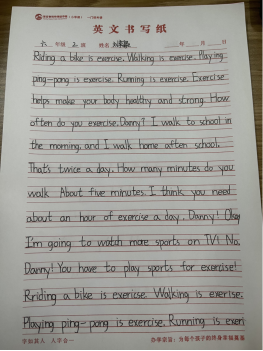 英文书写纸
六 年级 2 班 姓名 年 月 日
Riding a bike is exercise. Walking is exercise. Playing
ping-pong is exercise. Running is exercise. Exercise
helps make your body healthy and strong. How
often do you exercise. Danny? I walk to school in
the morning, and I walk home often school.
That's twice a day. How many minutes do you
walk About five minutes. I think, you need
about an hour of exercise a day, Danny! Okay
I'm going to watch more sports on TV! No.
Danny! You have to play sports for exercise!
Rriding a bike is exericse. Walking is exercise.
Playing ping-pong is exercise. Running is exer
字如其人 人字合一